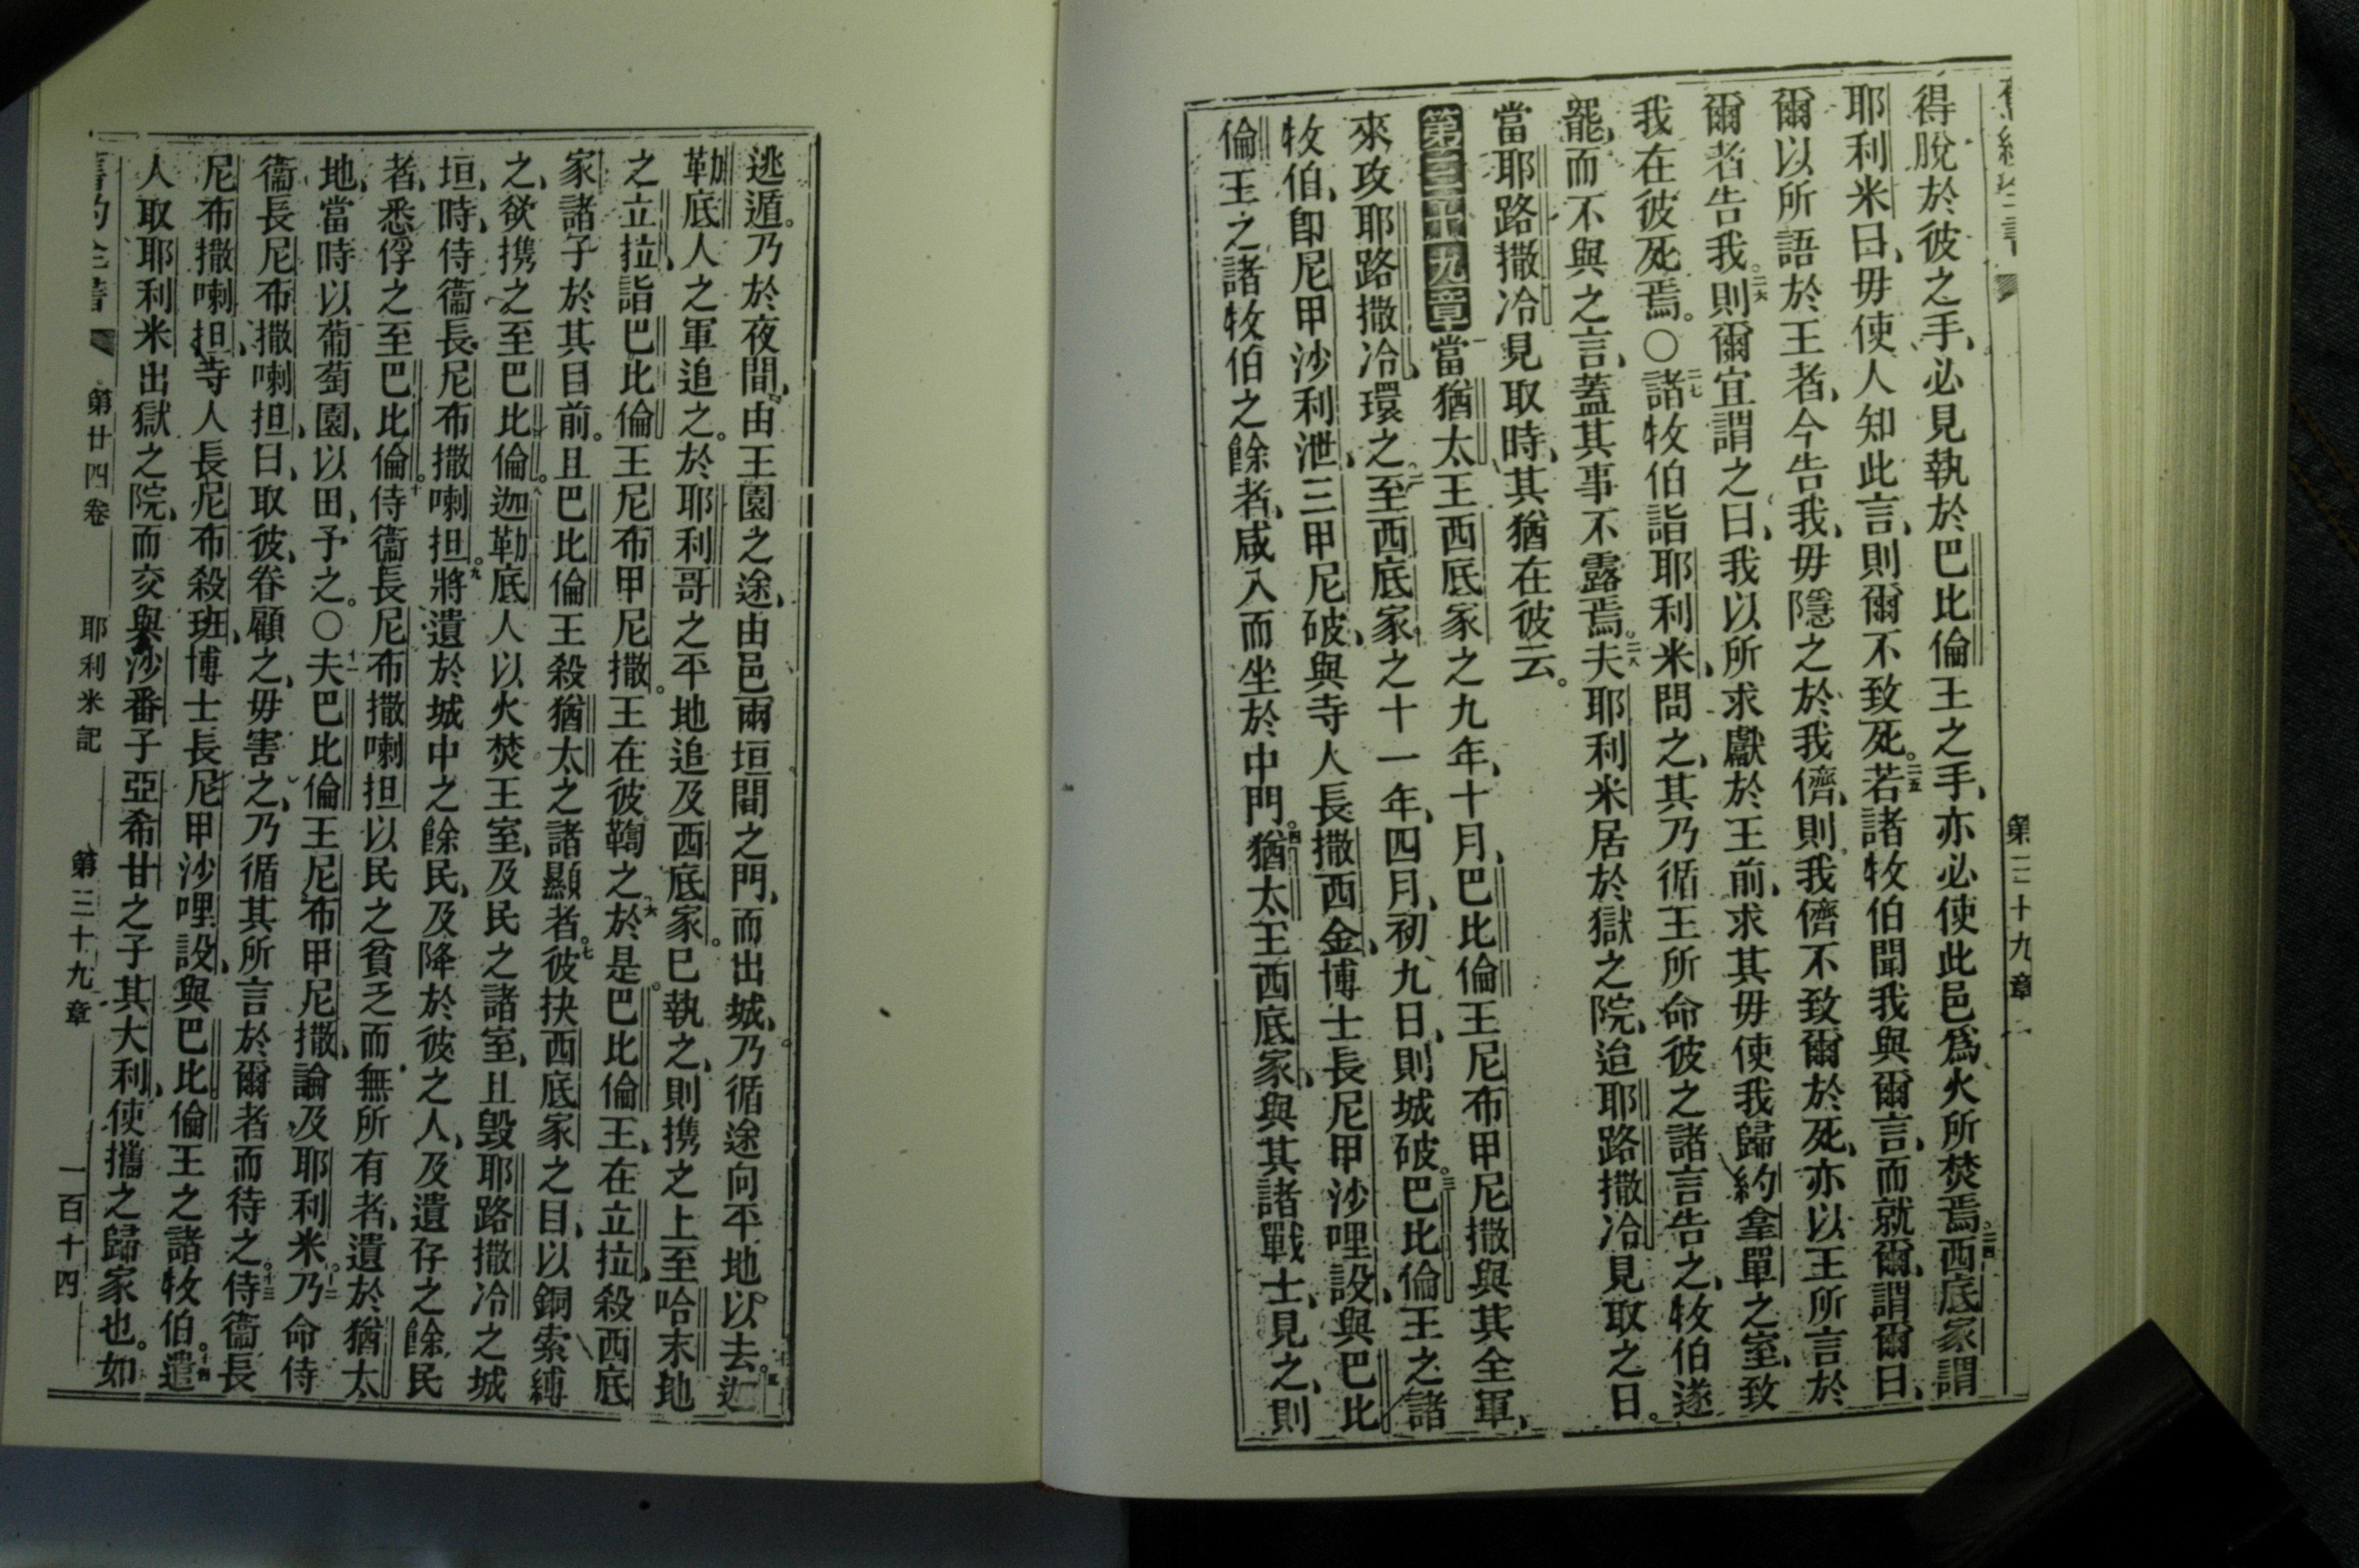 第三十九章
得脫於彼之手、必見執於巴比倫王之手、亦必使此邑爲火所焚焉。二四西底家謂
耶利米曰、毋使人知此言、則爾不致死。二五若諸牧伯聞我與爾言、而就爾、謂爾曰、
爾以所語於王者、今告我、毋隱之於我儕、則我儕不致爾於死、亦以王所言於
爾者告我。二六則爾宜謂之曰、我以所求獻於王前、求其毋使我歸約拿單之室、致
我在彼死焉。○二七諸牧伯詣耶利米、問之、其乃循王所命彼之諸言告之、牧伯遂
罷、而不與之言、蓋其事不露焉。二八夫耶利米居於獄之院、迨耶路撒冷見取之日。
當耶路撒冷見取時、其猶在彼云。
第三十九章當猶太王西底家之九年、十月、巴比倫王尼布甲尼撒與其全軍、
來攻耶路撒冷、環之。二至西底家之十一年、四月、初九日、則城破。三巴比倫王之諸
牧伯、卽尼甲沙利泄、三甲尼破、與寺人長撒西金、博士長尼甲沙哩設、與巴比
倫王之諸牧伯之餘者、咸入而坐於中門。四猶太王西底家、與其諸戰士、見之、則
逃遁。乃於夜間、由王園之途、由邑兩垣間之門、而出城、乃循途向平地以去。五迦
勒底人之軍追之。於耶利哥之平地追及西底家。已執之、則携之上至哈末地
之立拉、詣巴比倫王尼布甲尼撒。王在彼鞫之。六於是巴比倫王、在立拉、殺西底
家諸子於其目前。且巴比倫王殺猶太之諸顯者。七彼抉西底家之目、以銅索縛
之、欲携之至巴比倫。八迦勒底人以火焚王室、及民之諸室、且毀耶路撒冷之城
垣、時、侍衞長尼布撒喇担。九將遺於城中之餘民、及降於彼之人、及遺存之餘民
者、悉俘之至巴比倫。十侍衞長尼布撒喇担以民之貧乏而無所有者、遺於猶太
地、當時以葡萄園、以田、予之。○十一夫巴比倫王尼布甲尼撒、論及耶利米。十二乃命侍
衞長尼布撒喇担、曰、取彼、眷顧之、毋害之、乃循其所言於爾者而待之。十三侍衞長
尼布撒喇担、寺人長尼布殺班、博士長尼甲沙哩設、與巴比倫王之諸牧伯。十四遣
人取耶利米出獄之院、而交與沙番子亞希甘之子其大利、使攜之歸家也。如
舊約全書 第廿四卷 耶利米記 第三十九章 一百十四